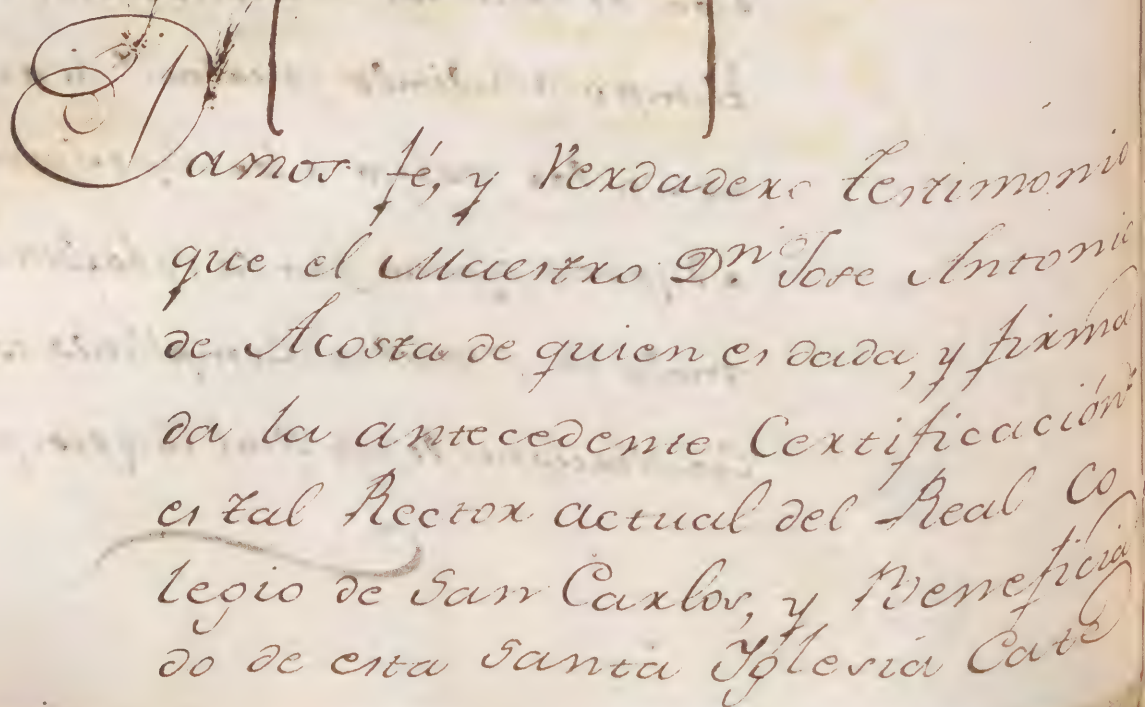 Damos fé, y Verdadero testimonio
que el Maestro Dn. Jose Antonio
de Acosta de quien es dada, y firma
da la antecedente Certificación
es tal Rector actual del Real Co
legio de San Carlos, y Beneficia
do de esta Santa Yglesia Cate